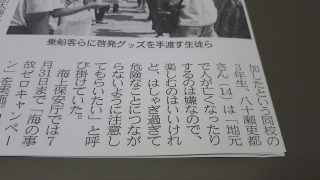 乗船客らに啓発グッズを手渡す生徒ら
加したという同校の
3年生、八十瀬東都
さん(14)は「地元
で人が亡くなったり
するのは嫌なので、
楽しむのはいいけれ
ど、はしゃぎ過ぎて
危険なことにつなが
らないように注意し
てもらいたい」と呼
び掛けていた。
海上保安庁では7
月31日まで「海の事
故ゼロキャンペー
ン」を実施